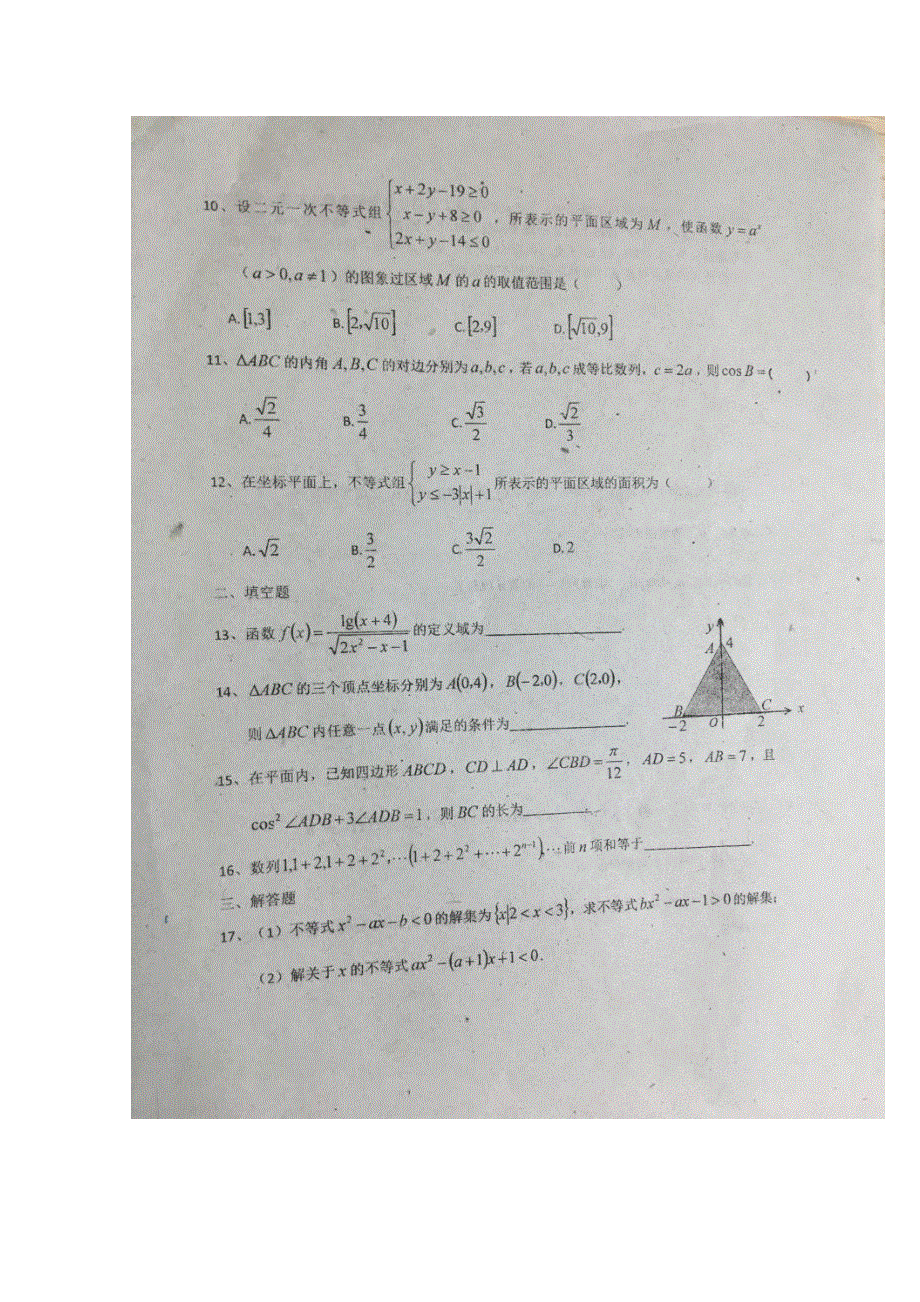 10、设二元一次不等式组 { x+2y-19≥0
x-y+8≥0
2x+y-14≤0 ，所表示的平面区域为 M ，使函数 y=a^x
（a>0,a≠1）的图象过区域 M 的 a 的取值范围是（　　）
A.[1,3]　B.[2,√10]　C.[2,9]　D.[√10,9]
11、ΔABC 的内角 A,B,C 的对边分别为 a,b,c，若 a,b,c 成等比数列，c=2a，则 cos B=(　　)
A. √2/4　B. 3/4　C. √3/2　D. √2/3
12、在坐标平面上，不等式组 { y≥x-1
y≤-3|x|+1 所表示的平面区域的面积为（　　）
A. √2　B. 3/2　C. 3√2/2　D. 2
二、填空题
13、函数 f(x)= lg(x+4)/√(2x²-x-1) 的定义域为____________.
14、ΔABC 的三个顶点坐标分别为 A(0,4)，B(-2,0)，C(2,0)，
则 ΔABC 内任意一点 (x,y) 满足的条件为____________.
y
A 4
B C x
-2 O 2
15、在平面内，已知四边形 ABCD，CD⊥AD，∠CBD=π/12，AD=5，AB=7，且
cos²∠ADB+3∠ADB=1，则 BC 的长为________.
16、数列 1,1+2,1+2+2²,⋯(1+2+2²+⋯+2^(n-1)),⋯前 n 项和等于____________.
三、解答题
17、（1）不等式 x²-ax-b<0 的解集为 {x|2<x<3}，求不等式 bx²-ax-1>0 的解集；
（2）解关于 x 的不等式 ax²-(a+1)x+1<0.